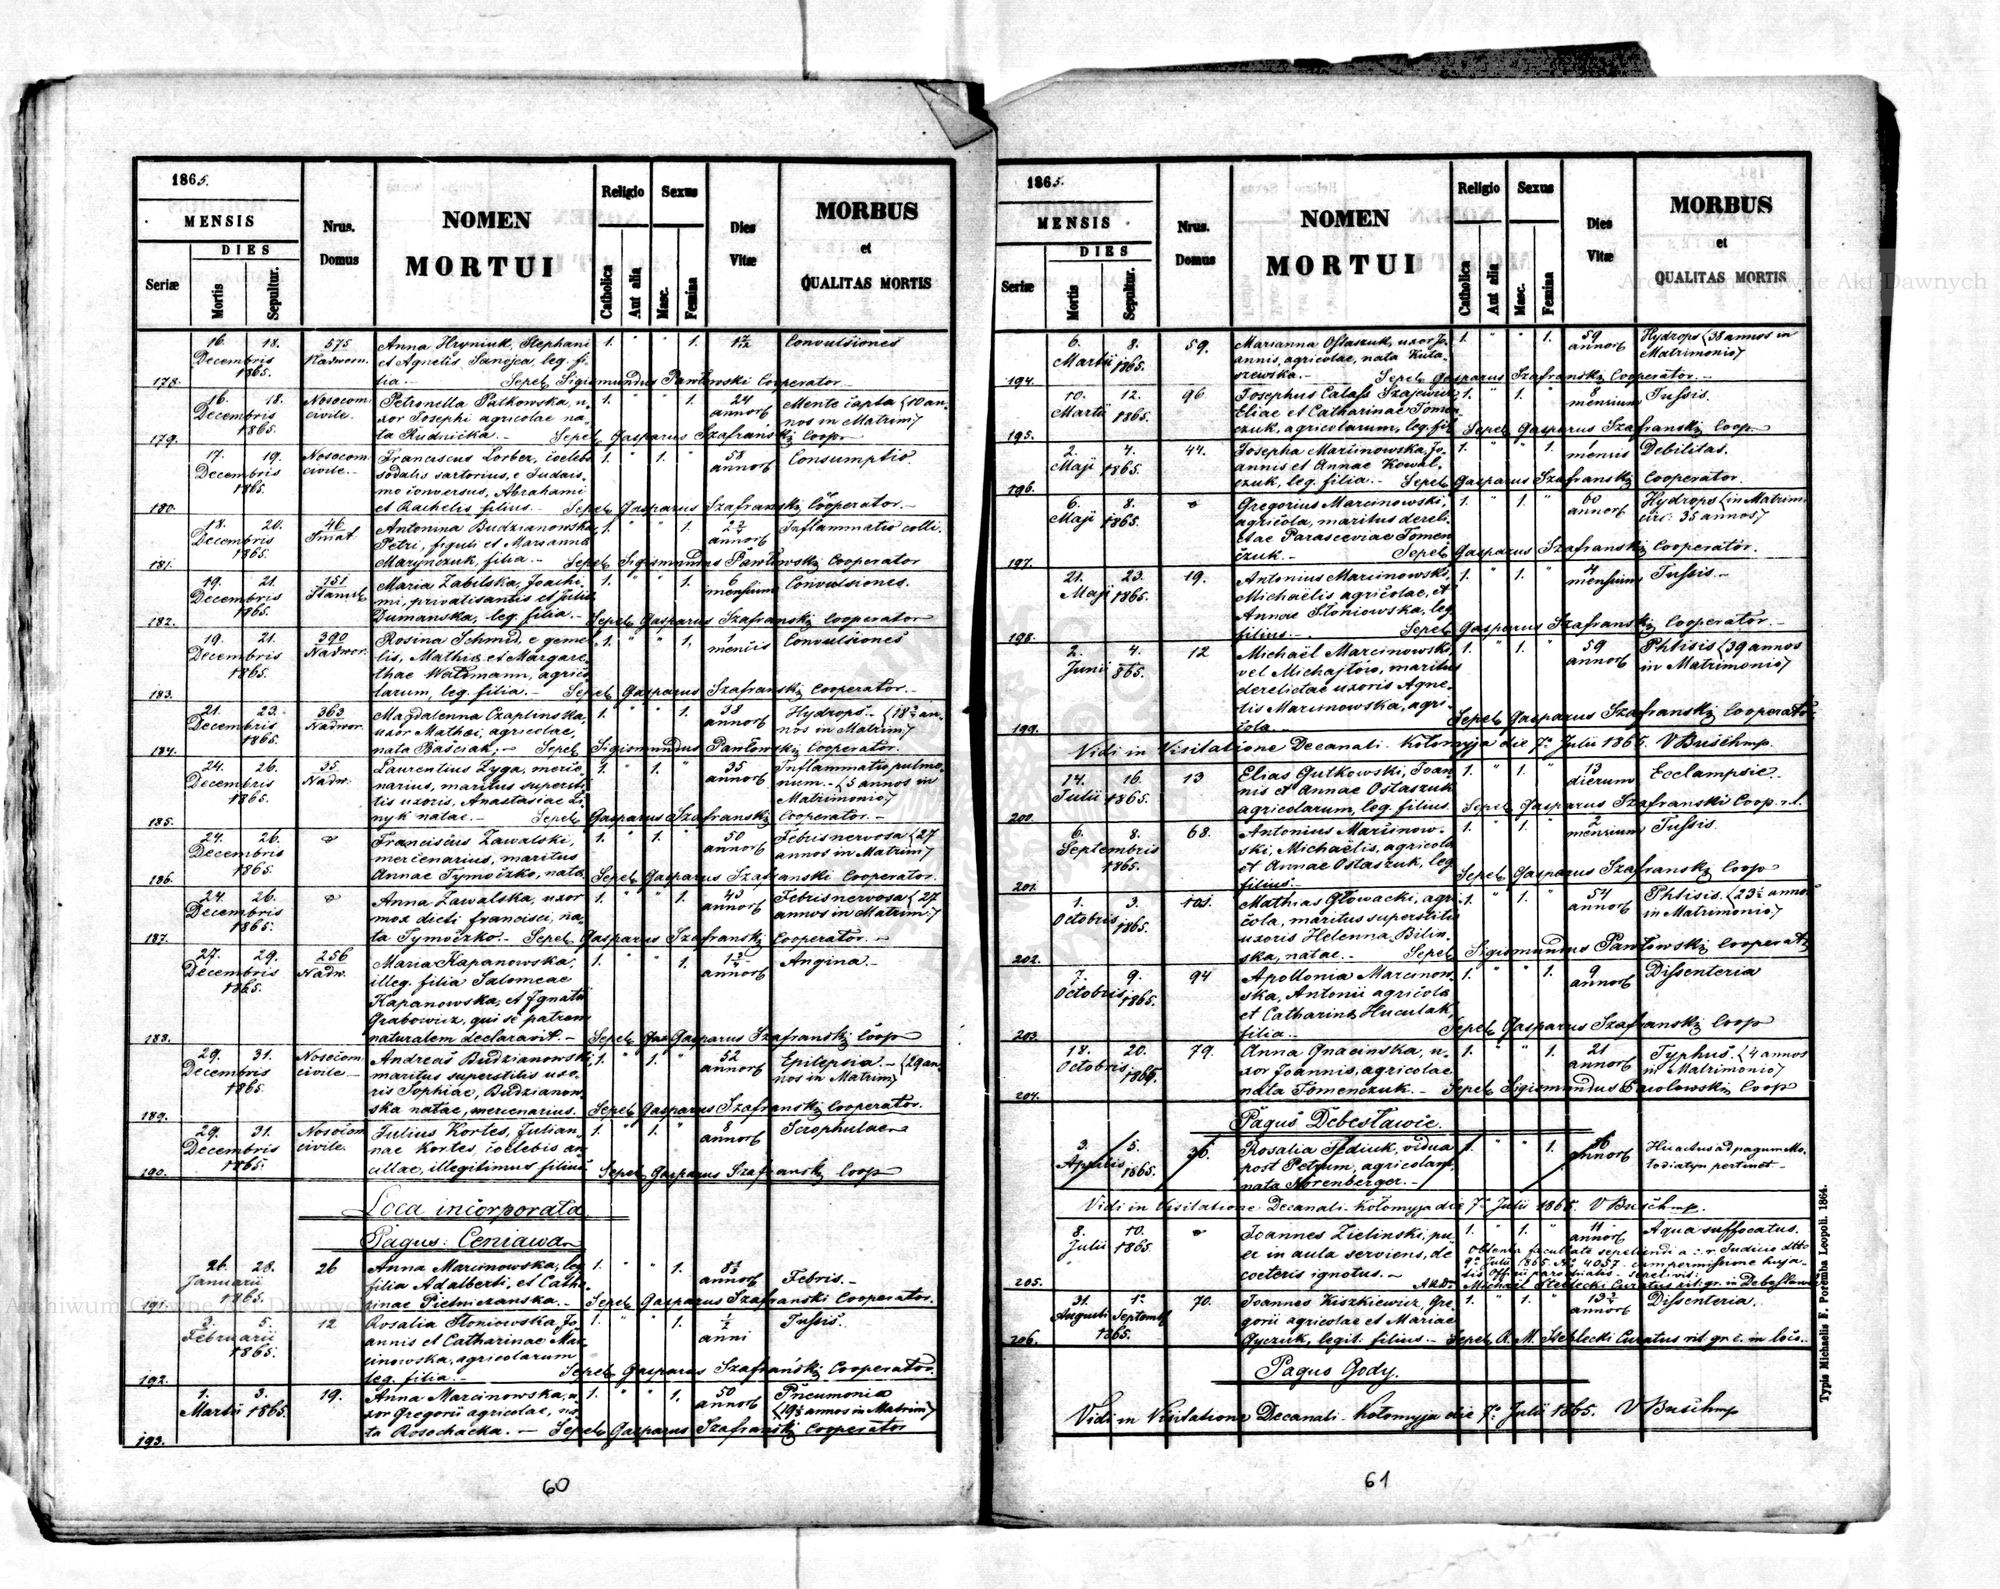 1865.
MENSIS
DIES
Seriæ
Mortis
Sepultur.
Nrus. Domus
NOMEN
MORTUI
Religio
Catholica
Aut alia
Sexus
Masc.
Femina
Dies
Vitæ
MORBUS
et
QUALITAS MORTIS
16. 18. 575 Anna Hryniuk, Stephani 1. " " 1. Convulsiones
Decembris Nadworn. et Agnetis leg. fi-
1865. lia.
178. Sepel. Sigismundus Pawłowski Cooperator
16. 18. Nosocom. Petronella Palkowska, u- 1. " " 1. 24 Mente capta (10 an-
Decembris civile. xor Josephi agricolae na- annor. nos in Matrim.)
1865. ta Rudnicka.
179. Sepel. Gasparus Szafrański Coop.
17. 19. Nosocom. Franciscus Lorber, coelebs 1. " 1. " 58 Consumptio
Decembris civile. sodalis sartorius, e Judais- annor.
1865. mo conversus, Abrahami
180. et Rachelis filius. Sepel. Gasparus Szafranski Cooperator.
18. 20. 46 Antonina Budzianowska, 1. " " 1. Inflammatio colli.
Decembris Petri, figuli et Marianna annor.
1865. Marynczuk, filia.
181. Sepel. Sigismundus Pawłowski Cooperator
19. 21. 151 Maria Zabilska, Joachi- 1. " " 1. 6 Convulsiones.
Decembris Stanisł. mi, privatisantis et Julia mensium
1865. Dumanska, leg. filia.
182. Sepel. Gasparus Szafranski Cooperator
19. 21. 390 Rosina Schmid, e geme- 1. " " 1. 1 Convulsiones
Decembris Nadwor. lis, Mathia et Margare- mensis
1865. thae Waltmann, agrico-
183. larum, leg. filia. Sepel. Gasparus Szafranski Cooperator.
21. 23. 363 Magdalenna Czaplinska, 1. " " 1. 38 Hydrops. (18½ an-
Decembris Nadwor. uxor Mathei, agricolae, annor. nos in Matrim.)
1865. nata Baściak;
184. Sepel. Sigismundus Pawłowski Cooperator.
24. 26. 35. Laurentius Zyga, merce- 1. " 1. " 35 Inflammatio pulmo-
Decembris Nadw. narius, maritus supersti- annor. num. (5 annos in
1865. tis uxoris, Anastasiae Li- Matrimonio)
185. nyk natae. Sepel. Gasparus Szafranski Cooperator.
24. 26. Franciscus Zawalski, 1. " 1. " 50 Febris nervosa (27
Decembris mercenarius, maritus annor. annos in Matrim.)
1865. Annae Tymoczko, nata
186. Sepel. Gasparus Szafranski Cooperator.
24. 26. Anna Zawalska, uxor 1. " " 1. Febris nervosa (27
Decembris mox dicti francisci, na- annor. annos in Matrim.)
1865. ta Tymoczko.
187. Sepel. Gasparus Szafranski Cooperator.
27. 29. 256 Maria Kapanowska, 1. " " 1. Angina.
Decembris Nadw. illeg. filia Salomeae annor.
1865. Kapanowska, et Ignatii
Grabowicz, qui se patrem
188. naturalem declaravit. Sepel. Gasparus Szafranski Coop
29. 31. Nosocom. Andreas Budzianowski, 1. " 1. " 52 Epilepsia. (29 an-
Decembris civile maritus superstitis uxo- annor. nos in Matrim)
1865. ris Sophiae, Budzianow-
189. ska natae, mercenarius. Sepel. Gasparus Szafranski Cooperator.
29. 31. Nosocom. Julius Kortes, Julian- 1. " 1. " 8 Scrophulae
Decembris civile. nae Kortes, coelebis an- annor.
1865. cillae, illegitimus filius
190. Sepel. Gasparus Szafranski Coop
Loca incorporata
Pagus: Ceniawa
26. 28. 26 Anna Marcinowska, leg. 1. " " 1. Febris.
Januarii filia Adalberti, et Catha- annor.
1865. rinae Pietniczanska.
191. Sepel. Gasparus Szafranski Cooperator.
3. 5. 12 Rosalia Słoniowska, Jo- 1. " " 1. ½ Tussis.
Februarii annis et Catharinae Mar- anni
1865. cinowska, agricolarum
192. leg. filia. Sepel. Gasparus Szafrański Cooperator.
1. 3. 19. Anna Marcinowska, u- 1. " " 1. 50 Pneumonia
Martii 1865. xor Gregorii agricolae, na- annor. (19½ annos in Matrim)
193. ta Rosochacka. Sepel. Gasparus Szafranski Cooperator
60
1865.
MENSIS
DIES
Seriæ
Mortis
Sepultur.
Nrus. Domus
NOMEN
MORTUI
Religio
Catholica
Aut alia
Sexus
Masc.
Femina
Dies
Vitæ
MORBUS
et
QUALITAS MORTIS
6. 8. 59. Marianna Ostaszuk, uxor Jo- 1. " " 1. 59 Hydrops (38 annos in
Martii 1865. annis, agricolae, nata Kuta- annor. Matrimonio)
szewska.
194. Sepel. Gasparus Szafranski Cooperator.
10. 12. 96 Josephus Calass Szajewicz 1. " 1. " Tussis.
Martii 1865. Eliae et Catharinae Tomen- mensium
czuk, agricolarum, leg. fil.
195. Sepel. Gasparus Szafranski Coop
2. 4. 44. Josepha Marcinowska, Jo- 1. " " 1. 1 Debilitas.
Maji 1865. annis et Annae Kowal- mensis
czuk, leg. filia.
196. Sepel. Gasparus Szafranski Cooperator
6. 8. Gregorius Marcinowski, 1. " 1. " 60 Hydrops (in Matrim.
Maji 1865. agricola, maritus dereli- annor. circ: 35 annos)
ctae Parasceviae Tomen-
czuk.
197. Sepel. Gasparus Szafranski Cooperator.
21. 23. 19. Antonius Marcinowski, 1. " 1. " 4 Tussis.
Maji 1865. Michaëlis agricolae, et mensium
Annae Słoniowska, leg.
198. filius. Sepel. Gasparus Szafranski Cooperator.
2. 4. 12 Michaël Marcinowski 1. " 1. " 59 Phtisis (39 annos
Junii 1865. vel Michajłow, maritus annor. in Matrimonio)
derelictae uxoris Agne-
tis Marcinowska, agri-
199. cola. Sepel. Gasparus Szafranski Cooperator.
Vidi in Visitatione Decanali. Kołomyja die 7. Julii 1865.
14. 16. 13 Elias Gutkowski, Joan- 1. " 1. " 13 Ecclampsie.
Julii 1865. nis et Annae Ostaszuk dierum
agricolarum, leg. filius.
200. Sepel. Gasparus Szafranski Coop. r.l.
6. 8. 68. Antonius Marcinow- 1. " 1. " 2 Tussis.
Septembris ski, Michaëlis, agricola mensium
1865. et Annae Ostaszuk, leg.
201. filius. Sepel. Gasparus Szafranski Coop
1. 3. 101. Mathias Głowacki, agri- 1. " 1. " 54 Phtisis. (23½ annos
Octobris 1865. cola, maritus superstitis annor. in Matrimonio)
uxoris Helenna, Bilin-
202. ska, natae. Sepel. Sigismundus Pawłowski Cooperat.
7. 9. 94 Apollonia Marcinow- 1. " " 1. 9 Dissenteria
Octobris 1865. ska, Antonii agricola annor.
et Catharina Huculak,
203. filia. Sepel. Gasparus Szafranski Coop
18. 20. 79. Anna Gnacinska, u- 1. " " 1. 21 Typhus. (4 annos
Octobris 1865. xor Joannis, agricolae annor. in Matrimonio)
204. nata Tomenczuk. Sepel. Sigismundus Pawlowski Coop
Pagus Debesławice.
3. 5. 36. Rosalia Fediuk, vidua 1. " " 1. Hic actus ad pagum Mo-
Aprilis 1865. post Petrum, agricolam, annor. lodiatyn pertinet
nata Norenberger.
Vidi in Visitatione Decanali. Kołomyja die 7. Julii 1865.
8. 10. Joannes Zielinski, pu- 1. " 1. " 11 Aqua suffocatus.
Julii 1865. er in aula serviens, de annor. Obtenta facultate sepeliendi a c. r. Judicio
coeteris ignotus. 9. Julii 1865. No 4057. cum permissione huja-
tis Officii parochialis sepelivit.
205. Michael Steblecki Curatus rit. gr. in Debesławce
31. 1. 70. Joannes Kiszkiewicz, Gre- 1. " 1. " Dissenteria.
Augusti Septemb. gorii agricolae et Mariae annor.
1865. Gyczuk, legit. filius.
206. Sepel. A. M. Steblecki Curatus rit. gr. c. in loco.
Pagus Gody.
Vidi in Visitatione Decanali. Kołomyja die 7. Julii 1865.
Typis Michaelis F. Poremba Leopoli. 1864.
61
Archiwum Główne Akt Dawnych
Archiwum Główne Akt Dawnych